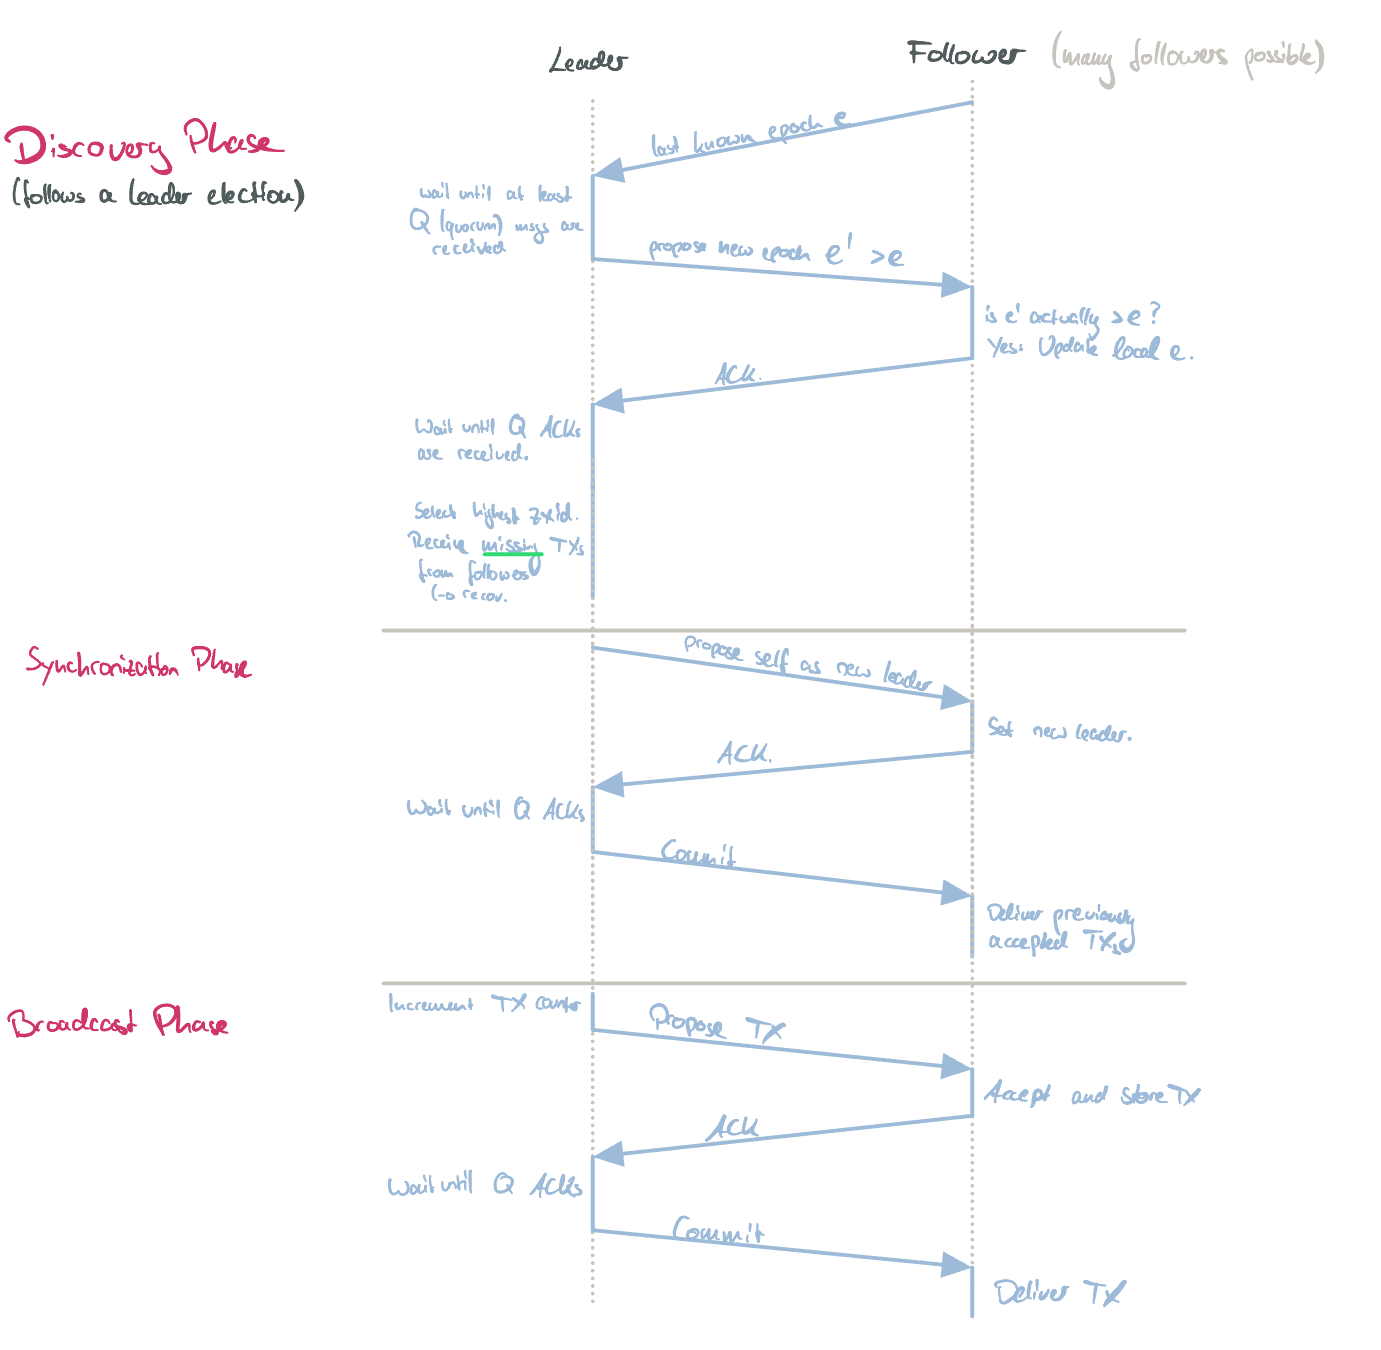 Leader
Follower (many followers possible)
Discovery Phase
(follows a leader election)
last known epoch e
wait until at least
Q (quorum) msgs are
received
propose new epoch e' >e
is e' actually >e?
Yes: Update local e.
ACK.
Wait until Q ACKs
are received.
Select highest zxid.
Receive missing TXs
from followers
(→ recov.
Synchronization Phase
propose self as new leader
Set new leader.
ACK.
Wait until Q ACKs
Commit
Deliver previously
accepted TXs
Broadcast Phase
Increment TX counter
Propose TX
Accept and store TX
ACK
Wait until Q ACKs
Commit
Deliver TX